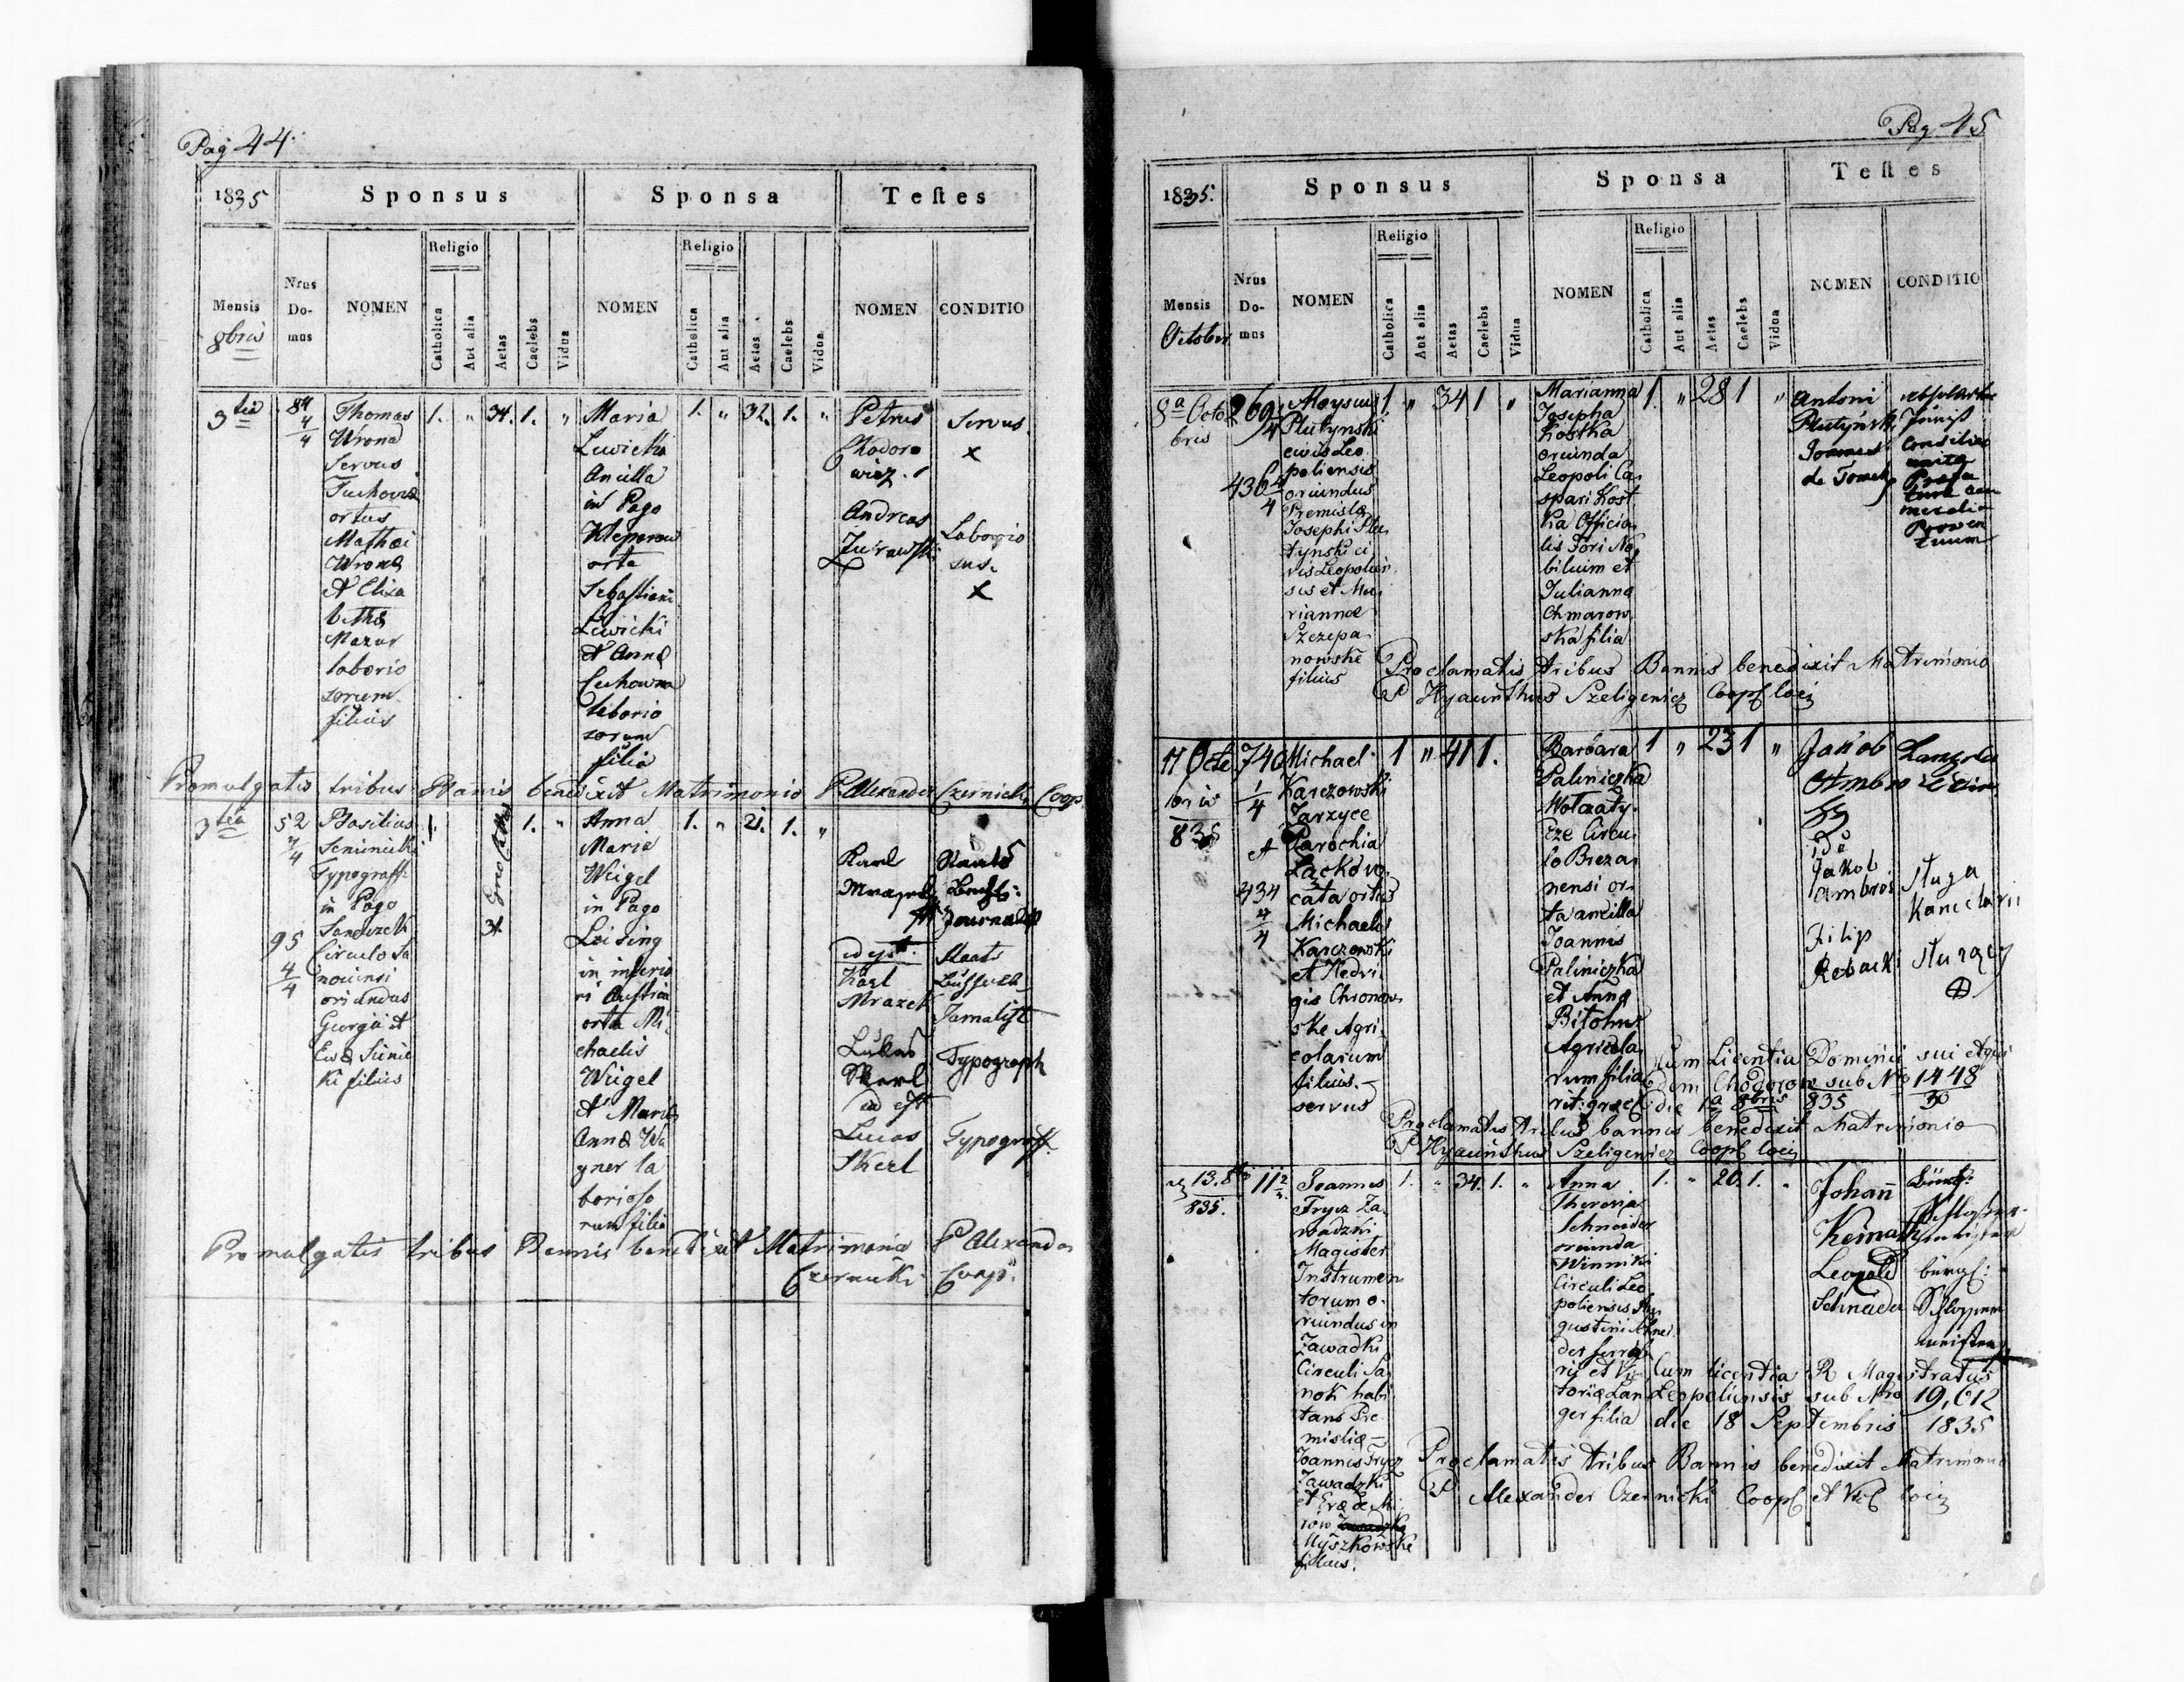 Pag 44.
1835
Sponsus
Sponsa
Testes
Mensis
8bris
Nrus
Do-
mus
NOMEN
Religio
Catholica
Aut alia
Aetas
Caelebs
Vidua
NOMEN
Religio
Catholica
Aut alia
Aetas
Caelebs
Vidua
NOMEN
CONDITIO
3tia
84
4/4
Thomas
Wrona
Servus
Tuchoviæ
ortus
Mathæi
Wrona
et Elisa
bethæ
Mazur
laborio
sorum
filius
1. " 34. 1. "
Maria
Lewicka
Ancilla
in Pago
Kleparow
orta
Sebastiani
Lewicki
et Annæ
laborio
sorum
filia
1. " 32. 1. "
Petrus
Chodoro
wicz.
Servus.
x
Andreas
Żurawski
Laborio
sus.
x
Promulgatis tribus Bannis benedixit Matrimonio P. Alexander Czernicki Coop.
3tia
52
4/4
95
4/4
Basilius
Typograff:
in Pago
Circulo Sa
nocensi
oriundus
Georgii et
Evæ Sienic
ki filius
1.
1. "
Anna
Maria
Weigel
in Pago
Leising
in inferio
ri Austria
orta Mi
chaelis
Weigel
et Mariæ
Annæ Wa
gner la
borioso
rum filia
1. " 21. 1. "
Karl
Mrazek
Staats
Journalist
id est.
Karl
Mrazek
Staats
Jornalist
Lukas
Skerl
Typograph
id est
Lucas
Skerl
Typograff.
Promulgatis tribus Bannis benedixit Matrimonio P Alexander
Czernicki Coop.
Pag 45
1835.
Sponsus
Sponsa
Testes
Mensis
October
Nrus
Do-
mus
NOMEN
Religio
Catholica
Aut alia
Aetas
Caelebs
Vidua
NOMEN
Religio
Catholica
Aut alia
Aetas
Caelebs
Vidua
NOMEN
CONDITIO
8a Octo
bris
269
/4
436
4/4
Aloysius
Plutynski
civis Leo
poliensis
oriundus
Premislæ
Josephi Plu
tynski ci
vis Leopolien
sis et Ma
riannæ
Szczepa
nowskæ
filius
1 " 34 1 "
Marianna
Josepha
Kostka
oriunda
Leopoli Ca
spari Kost
ka Officia
lis Fori No
bilium et
Julianna
Chmarow
ska filia
1. " 28 1 "
Antoni
Plutynski
Joannes
de Tomek
Proclamatis tribus Bannis benedixit Matrimonio
P Hyacinthus Szeligiewicz Coop loci
11 Octo
bris
835
740
1/4
et
434
4/4
Michael
Karczowski
Jarzyce
Parochia
ortus
Michaelis
Karczowski
et Hedvi
gis Chronow
skæ Agri
colarum
filius.
servus
1 " 41 1.
Barbara
Paliniczka
Circu
lo Brzeza
nensi or
ta ancilla
Joannis
Paliniczka
et Annæ
Agricola
rum filia
rit: græc.
1 " 23 1 "
Jakob
Ambro
id e
Jakob
Ambroż
Sługa
Kancelarii
Filip
Służący
⊕
Cum Licentia Dominii sui
Chodorow sub Nro 1448
die 1a 8bris 835
Proclamatis tribus bannis benedixit Matrimonio
P Hyacinthus Szeligiewicz Coop loci
13. 8br
835.
112
Joannes
Frycz Za
wadzki
Magister
Instrumen
torum o
riundus in
Zawadki
Circuli Sa
nok habi
tans Pre
misliæ
Joannis Frycz
Zawadzki
et Evæ de Mi
rów
Myszkowskæ
filius.
1. " 34. 1. "
Anna
Theresia
Schneider
oriunda
Winniki
Circuli Leo
poliensis Au
gustini Schnei
der
rii et Vic
toriæ Lan
ger filia
1. " 20. 1. "
Johann
Leopold
Schneider
bürgl:
Cum licentia R Magistratus
Leopoliensis sub Nro 19,612
die 18 Septembris 1835
Proclamatis tribus Bannis benedixit Matrimonio
P Alexander Czernicki Coop et Vic loci